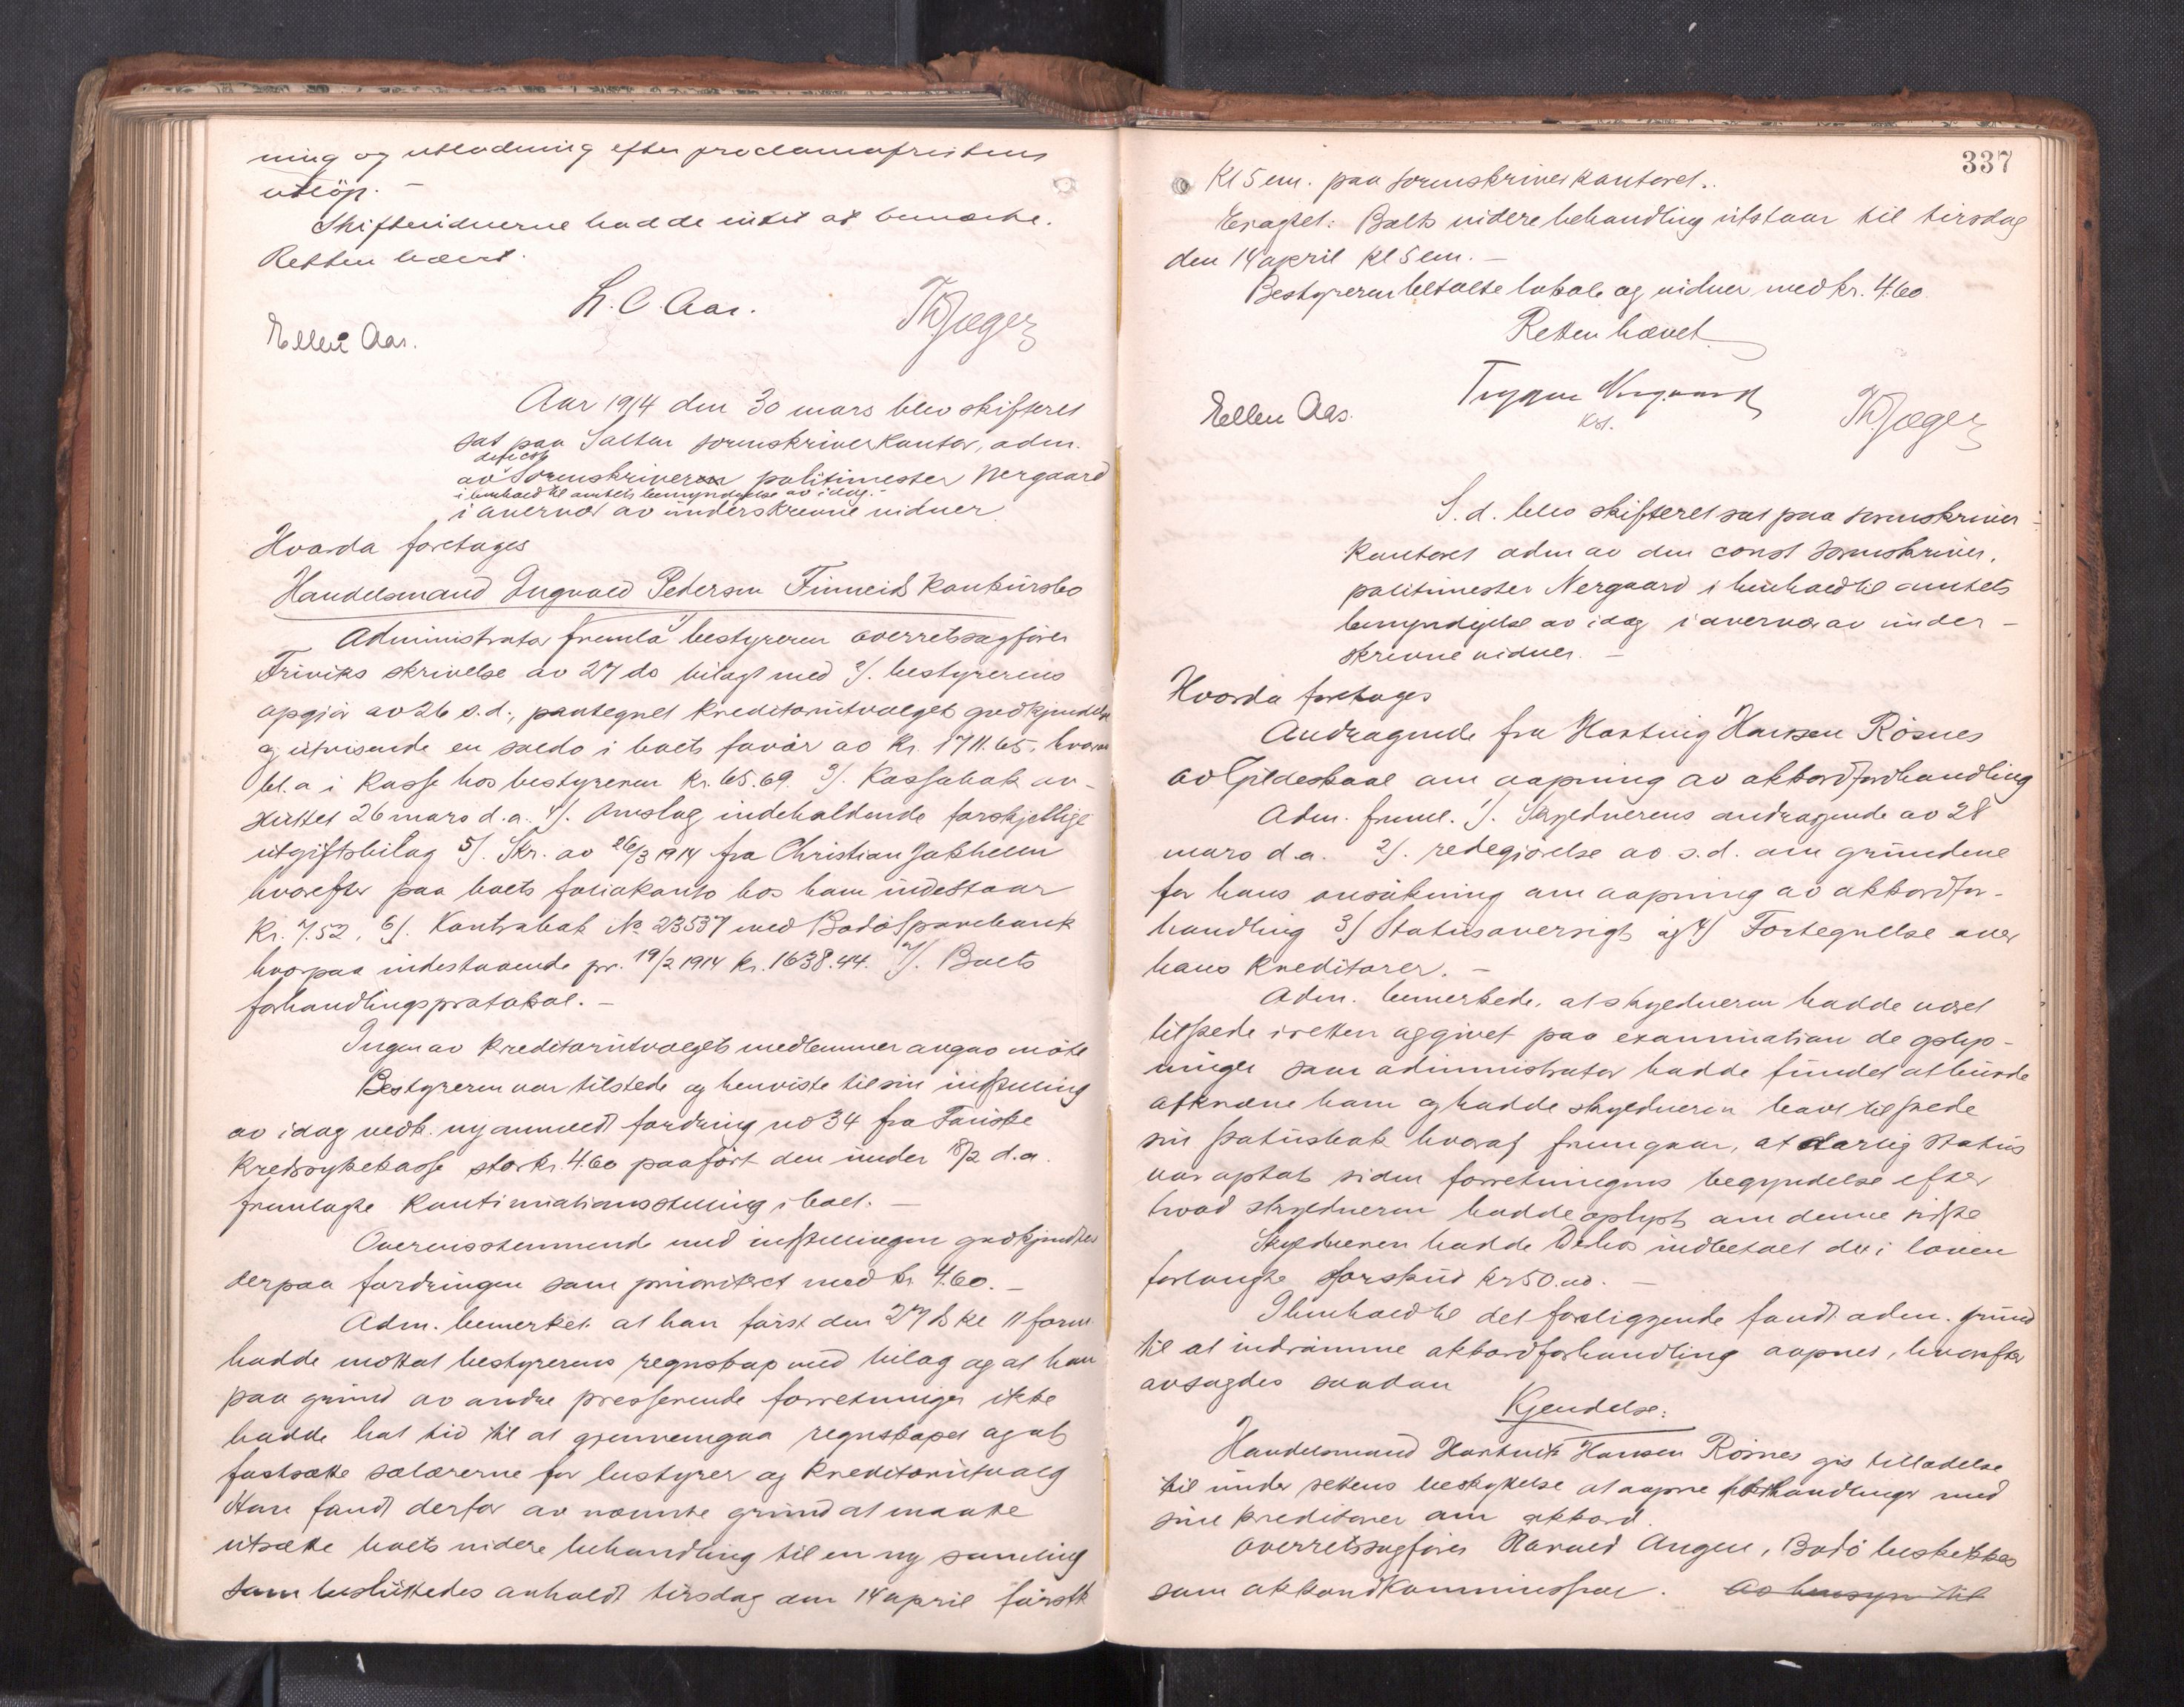 ning og utlodning efter proclamafristens
utløp. –
Skiftevidnerne hadde intet at bemerke.
Retten hævet.
L. C. Aas.
Ellen Aas.
Th Jæger
Aar 1914 den 30 mars blev skifteret
sat paa Salten sorenskriverkontor, adm.
av sorenskriveren politimester Nergaard
i henhold til amtets bemyndigelse av idag. –
i overvær av underskrevne vidner
Hvorda foretages
Handelsmand Ingvald Pedersen Finneids konkursbo
Administrator fremla 1) bestyreren overretssagfører
Friviks skrivelse av 27 ds bilagt med 2). bestyrerens
opgjør av 26 s.d., paategnet kreditorutvalgets godkjendelse
og utvisende en saldo i boets favør av kr. 1711.65, hvorav
bl. a i kasse hos bestyreren kr. 65.69. 3). Kassabok av-
sluttet 26 mars d.a. 4). Omslag indeholdende forskjellige
utgiftsbilag 5). Skr. av 26/3 1914 fra Christian Jakhelln
hvorefter paa boets foliokonto hos ham indestaar
kr. 7.52, 6). Kontrabok No 23537 med Bodø Sparebank
hvorpaa indestaaende pr. 19/2 1914 kr. 1638.44. 7). Boets
forhandlingsprotokol. –
Ingen av kreditorutvalgets medlemmer angav møte
Bestyreren var tilstede og henviste til sin indstilling
av idag vedk. ny anmeldt fordring no 34 fra Fauske
kredssykekasse stor kr. 4.60 paaført den under 18/2 d.a.
fremlagte kontinuationsstilling i boet. –
Overensstemmende med indstillingen godkjendtes
derpaa fordringen som prioritert med kr. 4.60. –
Adm. bemerket at han først den 27 ds kl 11 form
hadde mottat bestyrerens regnskap med bilag og at han
paa grund av andre presserende forretninger ikke
hadde hat tid til at gjennemgaa regnskapet og at
fastsætte salærerne for bestyrer og kreditorutvalg
Han fandt derfor av nævnte grund at maatte
utsætte boets videre behandling til en ny samling
som besluttedes anholdt tirsdag den 14 april førstk
337
kl 5 em. paa sorenskriverkontoret.
Eragtet: Boets videre behandling utstaar til tirsdag
den 14 april kl 5 em. –
Bestyreren betalte lokale og vidner med kr. 4.60.
Retten hævet
Trygve Nergaard
kst.
Ellen Aas.
Th Jæger
S. d. blev skifteret sat paa sorenskriver-
kontoret adm av den const sorenskriver,
politimester Nergaard i henhold til amtets
bemyndigelse av idag i overvær av under-
skrevne vidner. –
Hvorda foretages
Andragende fra Hartvig Hansen Rösnes
av Gildeskaal om aapning av akkordforhandling
Adm. freml. 1). Skyldnerens andragende av 28
mars d.a. 2). redegjørelse av s.d. om grundene
for hans ansökning om aapning av akkordfor-
handling 3) Statusoversigt og 4) Fortegnelse over
hans kreditorer. –
Adm. bemerkede, at skyldneren hadde været
tilstede i retten og givet paa examination de oplys-
ninger som administrator hadde fundet at burde
afkræve ham og hadde skyldneren havt tilstede
sin statusbok hvoraf fremgaar, at aarlig status
var optat siden forretningens begyndelse efter
hvad skyldneren hadde oplyst om denne sidste
Skyldneren hadde derhos indbetalt det i loven
forlangte forskud kr 50.00. –
I henhold til det foreliggende fandt adm. grund
til at indrömme akkordforhandling aapnet, hvorefter
avsagdes saadan
Kjendelse:
Handelsmand Hartvik Hansen Rösnes gis tilladelse
til under rettens beskyttelse at aapne forhandlinger med
sine kreditorer om akkord.
Overretssagfører Harald Angen, Bodö beskikkes
som akkordkommissær. Av hensyn til